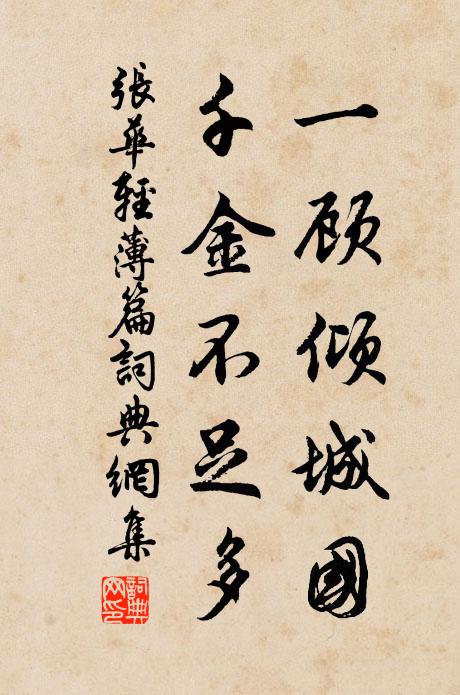 一顾倾城國
千金不足多
張華輕薄篇詞典網集
詞典網印